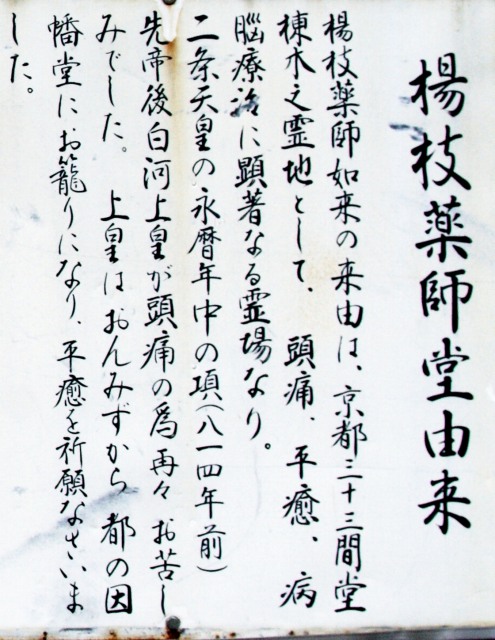 楊枝薬師堂由来
楊枝薬師如来の来由は、京都三十三間堂
棟木之霊地として、頭痛、平癒、病
脳療治に顕著なる霊場なり。
二条天皇の永暦年中の項(八一四年前)
先帝後白河上皇が頭痛の為再々お苦し
みでした。上皇はおんみずから都の因
幡堂にお籠りになり、平癒を祈願なさいま
した。